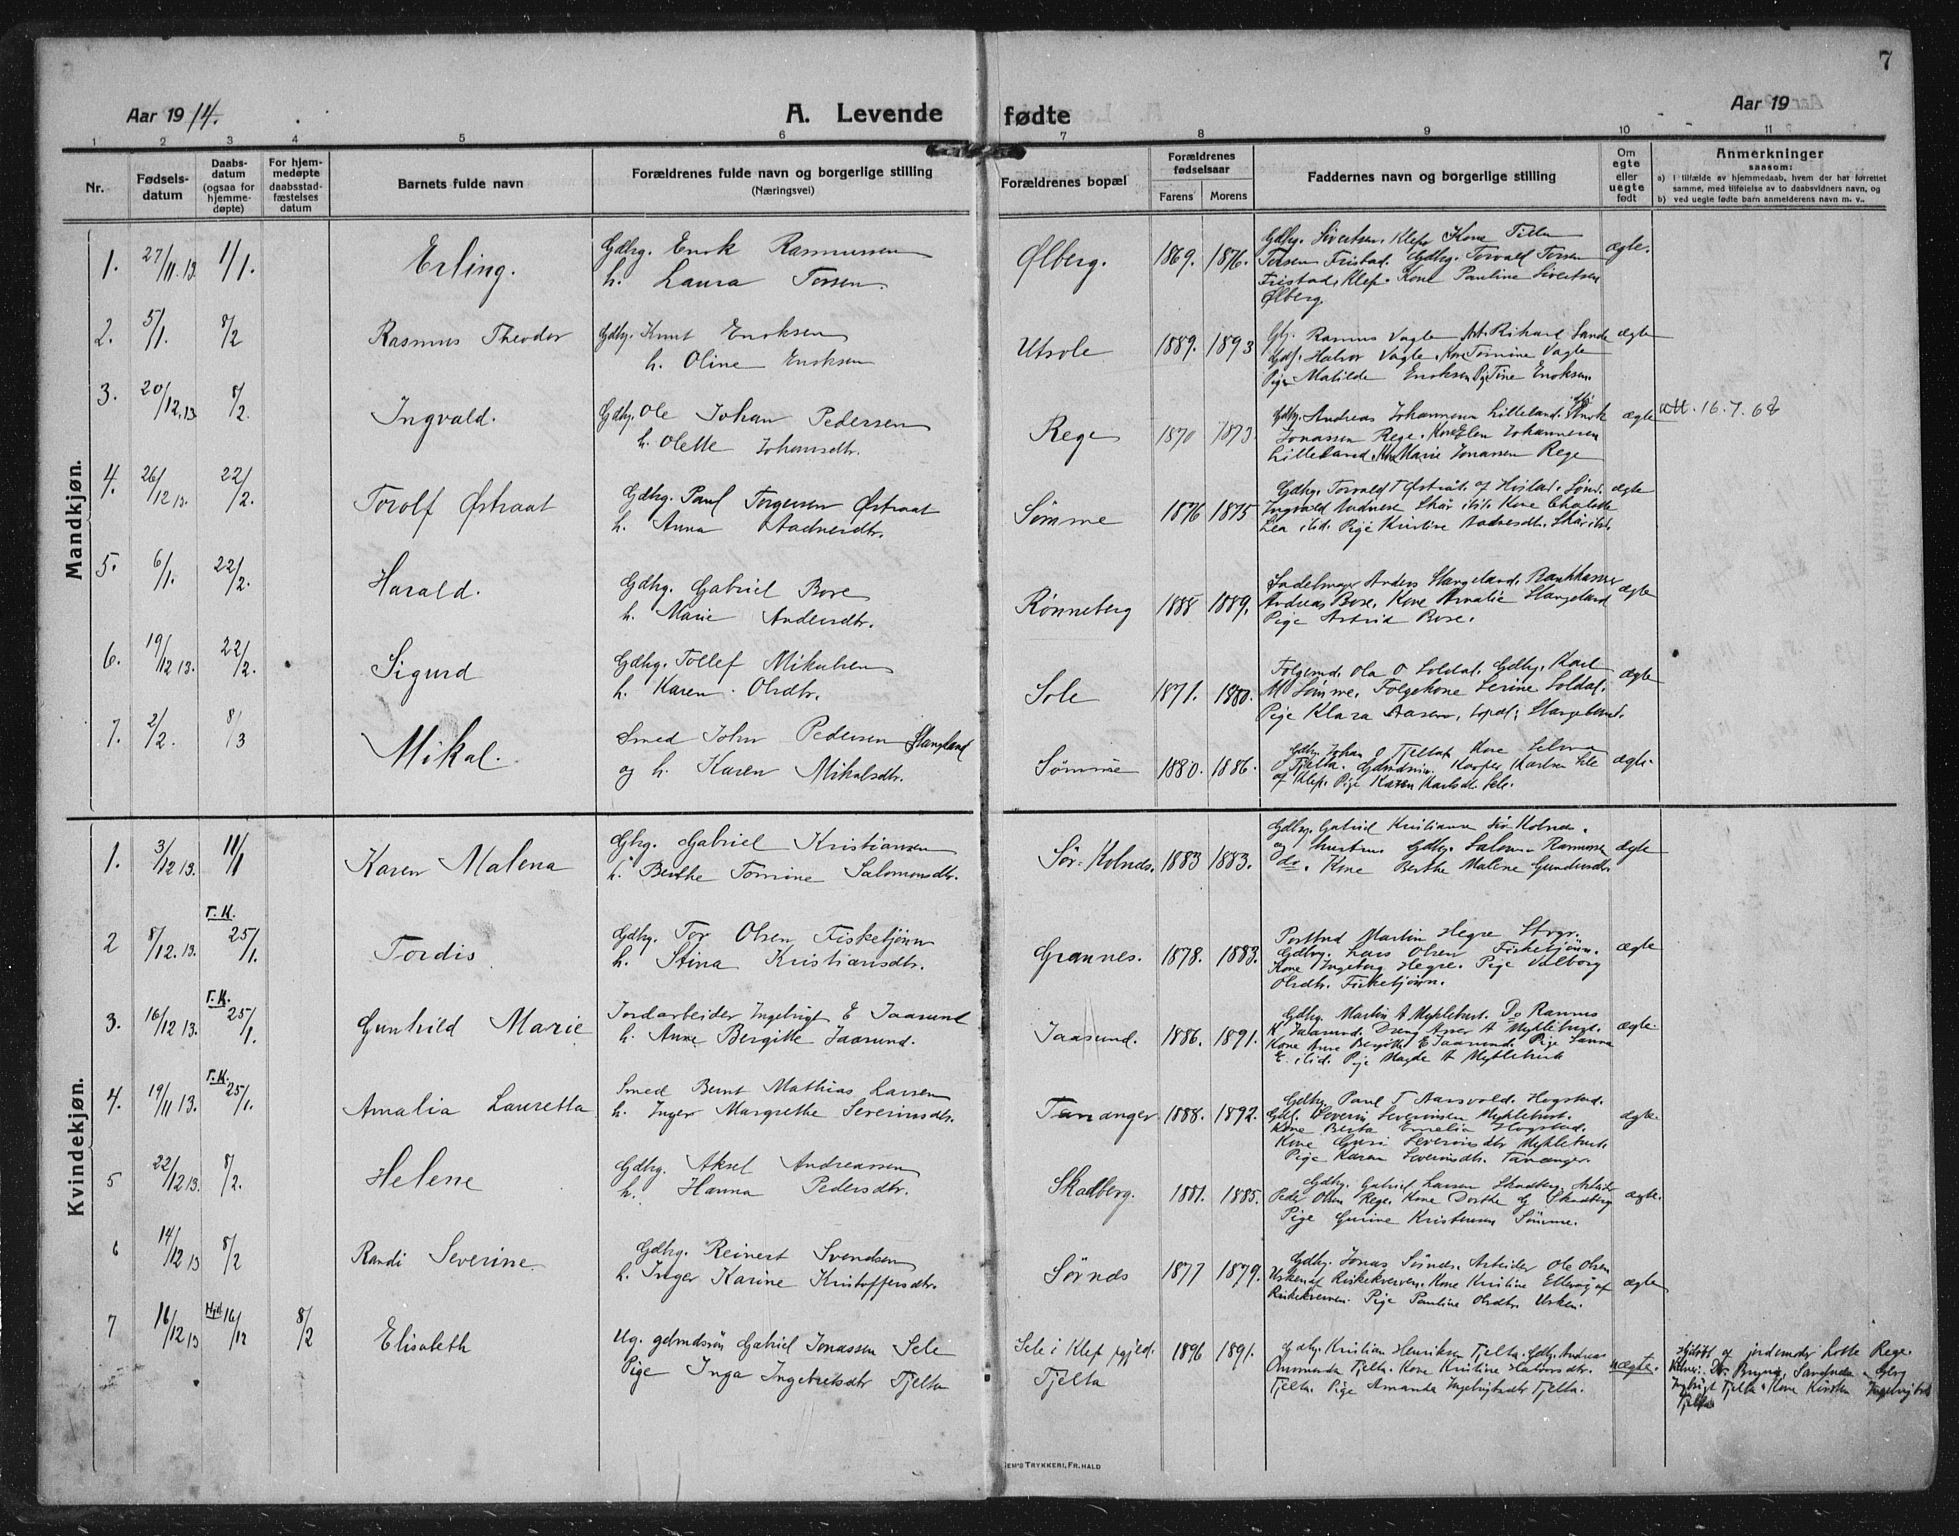 7
Aar 1914.
A. Levende fødte
Aar 19
1 2 3 4 5 6 7 8 9 10 11
Nr.
Fødsels-
datum
Daabs-
datum
(ogsaa for
hjemme-
døpte)
For hjem-
medøpte
daabsstad-
fæstelses
datum
Barnets fulde navn
Forældrenes fulde navn og borgerlige stilling
(Næringsvei)
Forældrenes bopæl
Forældrenes
fødselsaar
Farens Morens
Faddernes navn og borgerlige stilling
Om
egte
eller
uegte
født
Anmerkninger
saasom:
a) i tilfælde av hjemmedaab, hvem der har forrettet
samme, med tilføielse av to daabsvidners navn, og
b) ved uegte fødte barn anmelderens navn m. v..
Mandkjøn.
1. 27/11.13. 1/1. Erling. Gdbrg. Enok Rasmussen
h. Laura Torsen.
Ølberg. 1869. 1876.
Gdbrg. Sivertsen, Klep. Kone
Torsen Fristad. Gdbrg. Torvald Torsen
Fristad, Klep. Kone Pauline Sivertsen
Ølberg.
ægte.
2. 5/1. 8/2 Rasmus Theodor Gdbrg. Knut Enoksen
h. Oline Enoksen
Utsole 1889. 1893
Rasmus Vagle Rikard Sande
Halvor Vagle, Kone Tomine Vagle
Pige Matilde Enoksen Pg Tine Enoksen.
ægte
3. 20/12.13 8/2. Ingvald. Gdbrg. Ole Johan Pedersen
h. Olette Johansdtr.
Rege 1870 1873.
Gdbrg. Andreas Johannesen Lilleland. Enok
Jonassen Rege. Kone Elen Johannesen
Lilleland, Marie Jonassen Rege
ægte att. 16.7.68
4. 26/12 13. 22/2. Torolf Østraat Gdbrg. Paul Torgersen Østraat
h. Anna Aadnesdtr.
Sømme 1876 1875
Gdbrg. Torvald T Østråt
Ingvald Aadnesen Skår itit. Kone
Lea itid. Pige Kristine Aadnesdtr. Skår itit.
ægte
5. 6/1. 22/2. Harald. Gdbrg. Gabriel Bore
h. Marie Andersdtr.
Rønneberg 1888 1889.
Sadelmager Anders Stangeland. Bankkasser
Andreas Bore. Kone Amalie Stangeland
Pige Astrid Bore.
ægte
6. 19/12 13. 22/2. Sigurd Gdbrg. Tollef Mikalsen
h. Karen Olsdtr.
Sole 1871. 1880.
Folgemd. Ola O Soldal. Gdbrg. Karl
M Sømme. Folgekone Serine Soldal.
Pige Klara Aasen, Stangeland.
ægte
7. 2/2. 8/3 Mikal. Smed John Pedersen Stangland
og h. Karen Mikalsdtr.
Sømme 1880. 1886.
Gdbrg. Johan O Tjelta. Kone Selma
O Tjelta. Kasper Karlsen Sele
af Klep. Pige Karen Karlsdt. Sele.
ægte.
Kvindekjøn.
1. 3/12 13. 11/1 Karen Malena Gbrg. Gabriel Kristiansen
h. Berthe Tomine Salomonsdtr.
Sør-Kolnes. 1883 1883.
Gdbrg. Gabriel Kristiansen Sør Kolnes.
og hustru. Gdbrg. Salomon Rasmussen
do. Kone Berthe Malene Gundersdtr.
ægte
2 8/12.13. T.K. 25/1. Tordis Gdbrg. Tor Olsen Fisketjønn
h. Stina Kristiansdtr.
Grannes. 1878. 1883.
Postbud Martin Hegre Stvgr.
Gdbrg. Lars Olsen Fisketjønn.
Kone Ingeborg Hegre. Pige Valborg
Olsdtr. Fisketjønn.
ægte
3. 16/12 13. T.K. 25/1. Gunhild Marie Jordarbeider Ingebrigt E Jaasund
h. Anne Bergitte Jaasund.
Jaasund. 1886. 1891.
Gdbrg. Martin A Myklebust. Do Rasmus
K Jaasund. Dreng Asser A Myklebust.
Kone Anne Bergitte E Jaasund. Pige Laura
E. itid. Pige Magda A Myklebust
ægte.
4. 19/11 13. T.K. 25/1. Amalia Lauretta Smed Bernt Mathias Larsen
h. Inger Margrethe Severinsdtr.
Tananger. 1888. 1892.
Gdbrg. Paul T Aarsvold. Hogstad.
Severin Severinsen Myklebust.
Kone Berta Emelia Hogstad.
Kone Guri Severinsdtr Myklebust.
Pige Karen Severinsdtr. Tananger.
ægte.
5 22/12 13. 8/2. Helene Gdbrg. Aksel Andreassen
h. Hanna Pedersdtr.
Skadberg. 1881. 1885.
Gdbrg. Gabriel Larsen Skadberg. Arbeider
Peder Olsen Rege. Kone Dorthe G Skadberg
Pige Gurine Kristensen Sømme.
ægte.
6 14/12 13 8/2 Randi Severine Gdbrg. Reinert Svendsen
h. Inger Karine Kristoffersdtr.
Sørnes 1877 1879.
Gdbrg. Jonas Sørnes. Arbeider Ole Olsen
Usken af Riskekverven. Kone Kristine Ellevåg af
Riskekverven. Pige Pauline Olsdtr. Usken.
ægte
7 16/12 13 Hjd. 16/12 8/2 Elisabeth Ug. gdmdsøn Gabriel Jonassen Sele
Pige Inga Ingebretsdtr Tjelta
Sele i Klep pgjeld.
Tjelta
1896 1891.
Gdbrg. Kristian Henriksen Tjelta. Gdbrg. Andreas
Ommundsen Tjelta. Kone Kristine Halvorsdtr.
Tjelta. Pige Amanda Ingebrigtsdtr Tjelta.
uægte.
Hjdøbt af jordemoder Lotte Rege.
Vidner: Dr. Bryne, Sandnes
Ingebrigt Tjelta Kone Kirsten Ingebrigtsen
Tjelta
EM'S TRYKKERI, FR.HALD